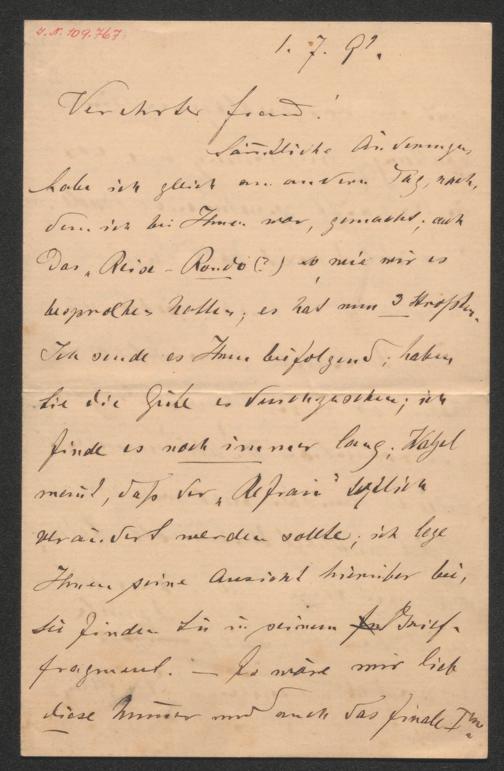 J. N. 109.767
1. 7. 91.
Verehrter Freund!
Sämtliche Änderungen,
habe ich gleich am andern Tag, nach-
dem ich bei Ihnen war, gemacht, auch
das „Reise-Rondo(?) so, wie wir es
besprochen hatten; es hat nun 3 Strophen.
Ich sende es Ihnen beifolgend; haben
Sie die Güte es durchzusehen; ich
finde es noch immer lang;
meint, daß der „Refrain" textlich
verändert werden sollte; ich lege
Ihnen seine Ansicht hierüber bei,
Sie finden sie in seinem Brief-
fragment. — Es wäre mir lieb
diese Nummer und auch das Finale I<sup>mo</sup>